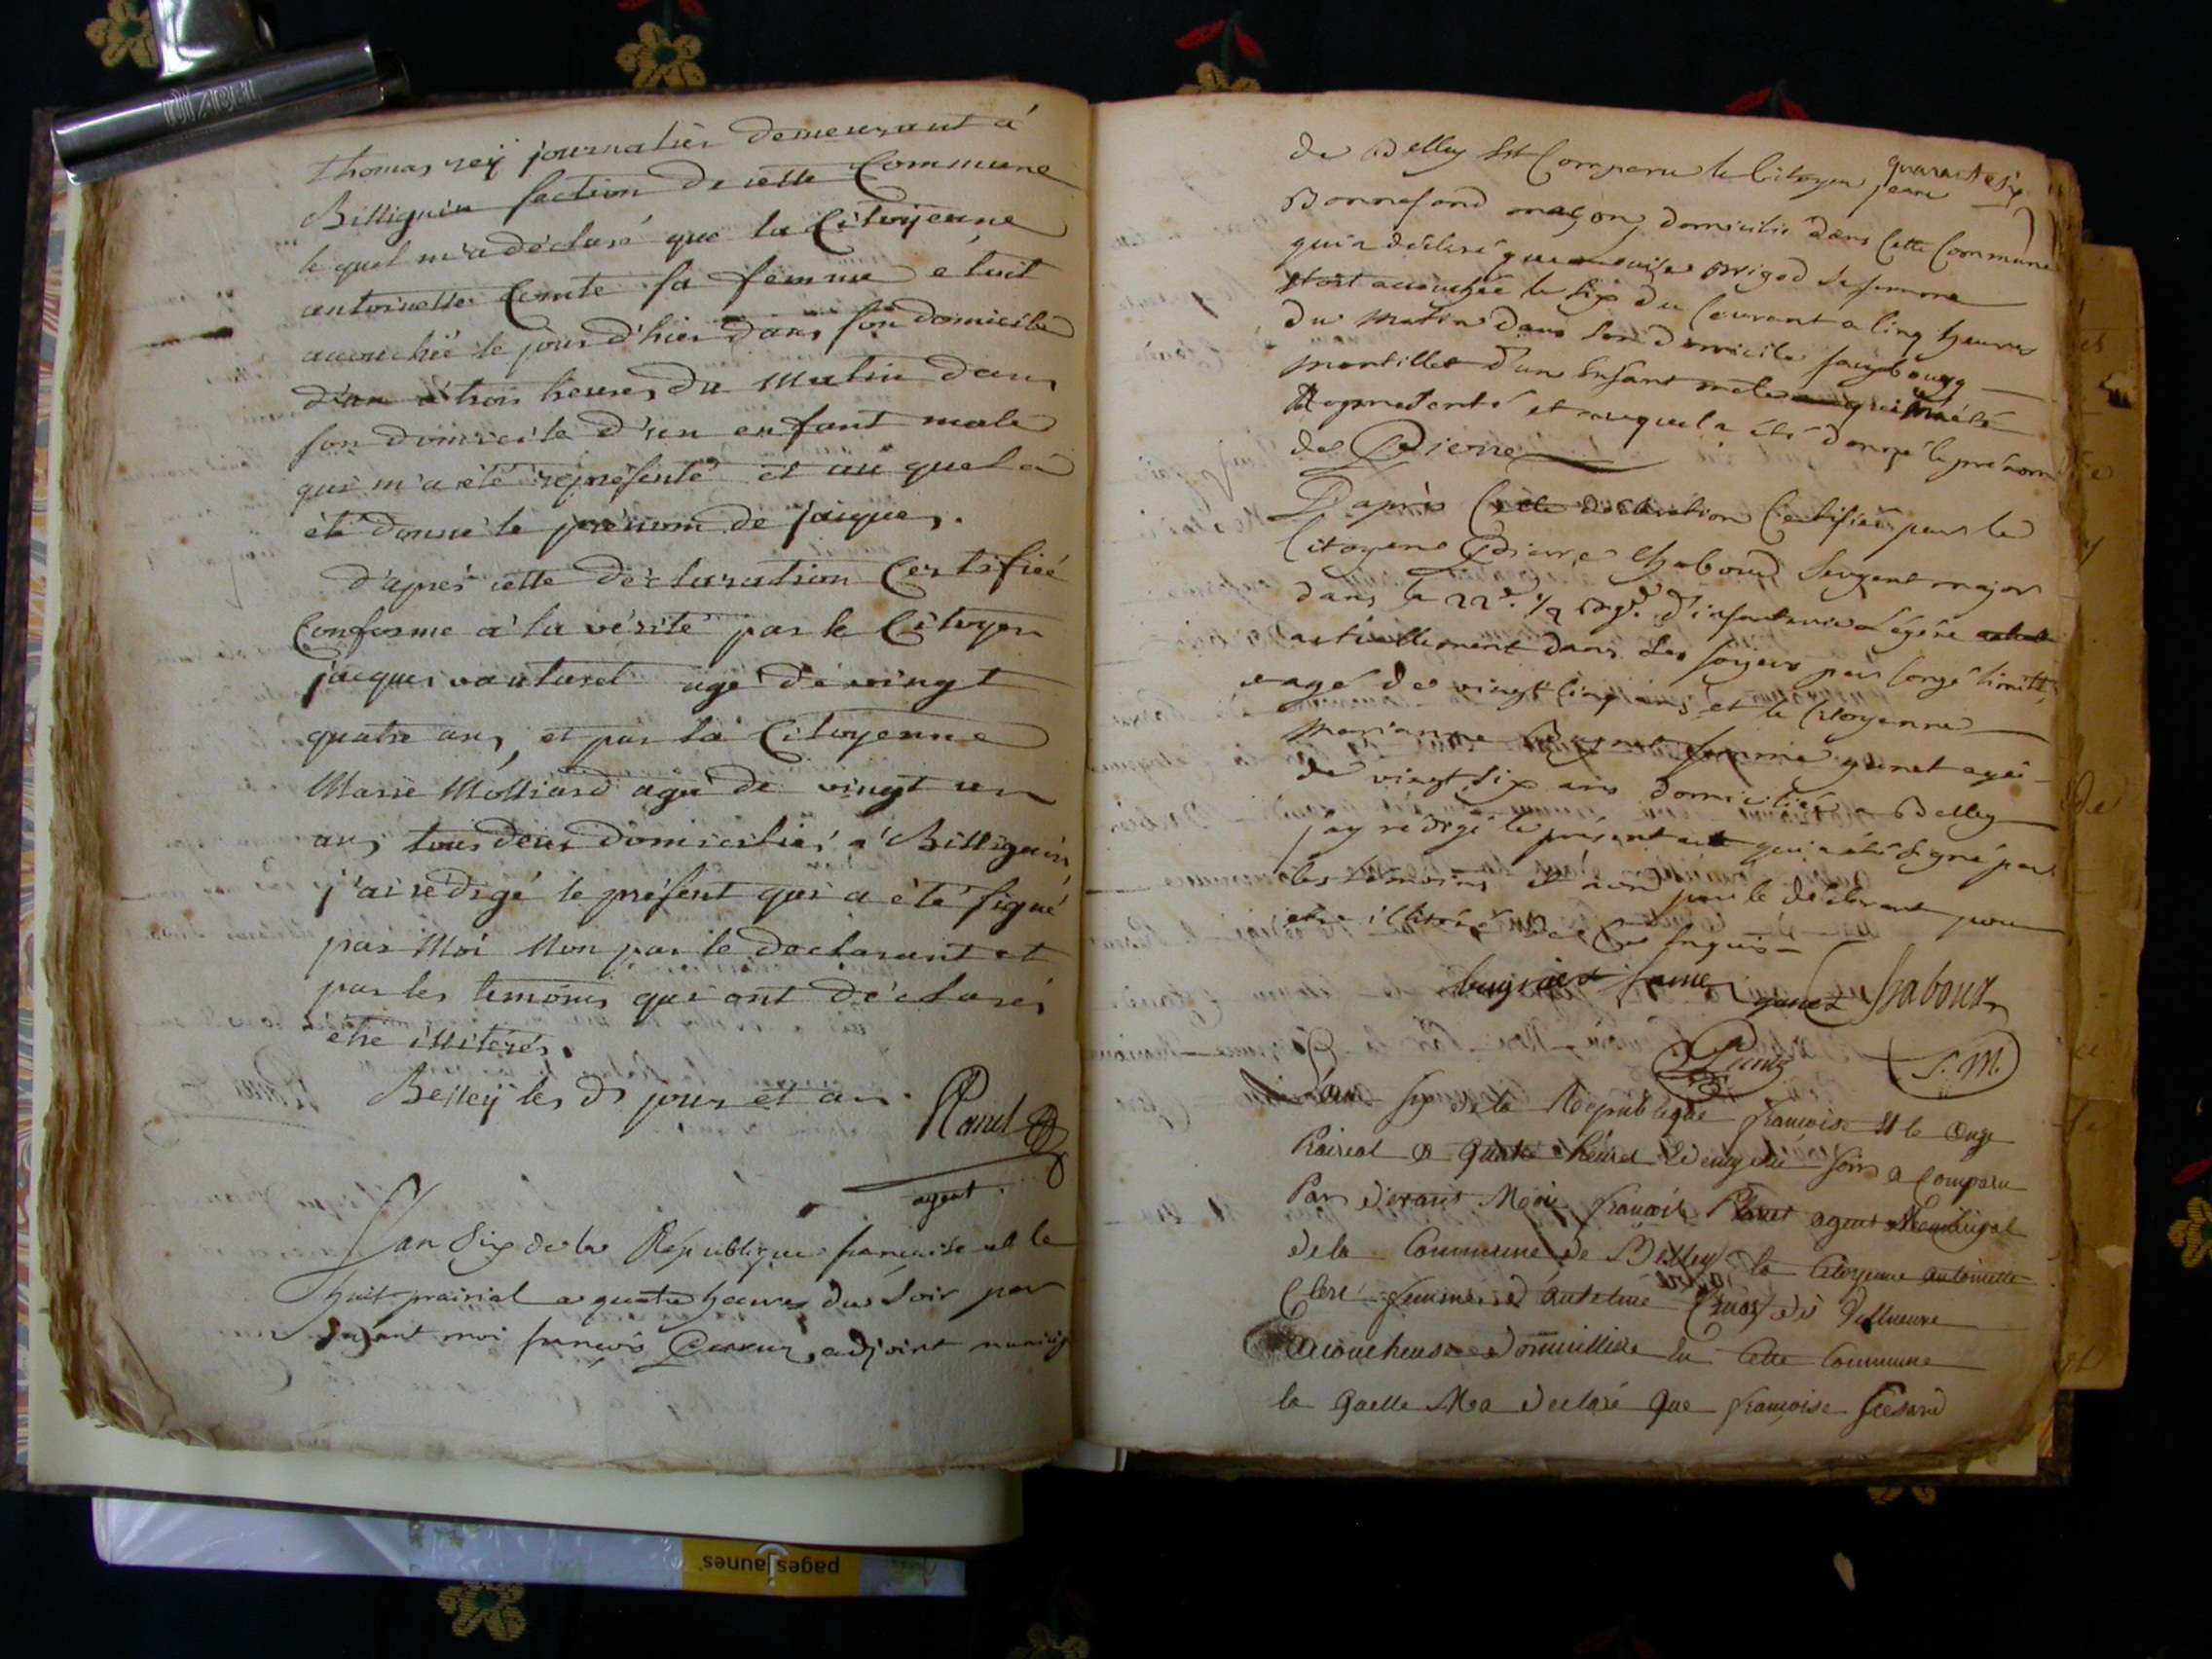 Thomas reÿ journalier demeurant à
Billignin section de cette Commune
le quel m'a déclaré que la Citoyenne
antoinette Comte sa femme etoit
accouchée le jour d'hier dans son domicile
à trois heures du Matin dans
son domicile d'un enfant male
qui m'a été représenté et au quel a
été donné le prénom de jaique.
d'après cette déclaration Certifiée
Conforme à la vérité par le Citoyen
jacques vauturet agé de vingt
quatre ans, et par la Citoyenne
Marie Molliard agé de vingt un
ans tous deux domiciliés à Billignin
j'ai rédigé le présent qui a été signé
par Moi Non par le declarant et
par les temoins qui ont déclarés
être illiterés.
Belleÿ les ds jour et an.
agent.
L'an Six de la République française et le
huit prairial a quatre heures du Soir par
devant moi françois adjoint municip
quarante six
de Belley Est Comparu le Citoyen jean
Bonnefond maçon domicilié dans Cette Commune
qui a déclaré que Brigod Sa femme
etoit accouchée le six du Courant a Cinq heures
du matin dans Son domicile faugbourg
d'un Enfant mâle qui m'a été
Représenté et auquel a été donné le prénom
de Pierre
D'après Cette déclaration Certifiée par le
Citoyen Pierre Chaboud Sergent major
dans la 22e. 1/2 Brge. d'infanterie Légère
actuellement dans Ses foyers par Congé limitté
agé de vingt Cinq ans et la Citoyenne
marianne femme gunet agée
de vingt Six ans domiciliée a Belley
j'ay rédigé le présent acte qui a été Signé par
les témoins et non par le déclarant pour
etre illitéré de Ce Enquis
femme gunet Chaboud
S. M.
L'an six de la République françoise et le onze
Prairial a quatre heures du soir a Comparu
Par devant Moi françois agent Municipal
de la Commune de Belley la Citoyenne antoinette
Clerc femme d'antelme dit Villneuve
acoucheuse domicilliée en Cette Commune
la quelle M'a declaré que françoise
pagesjaunes